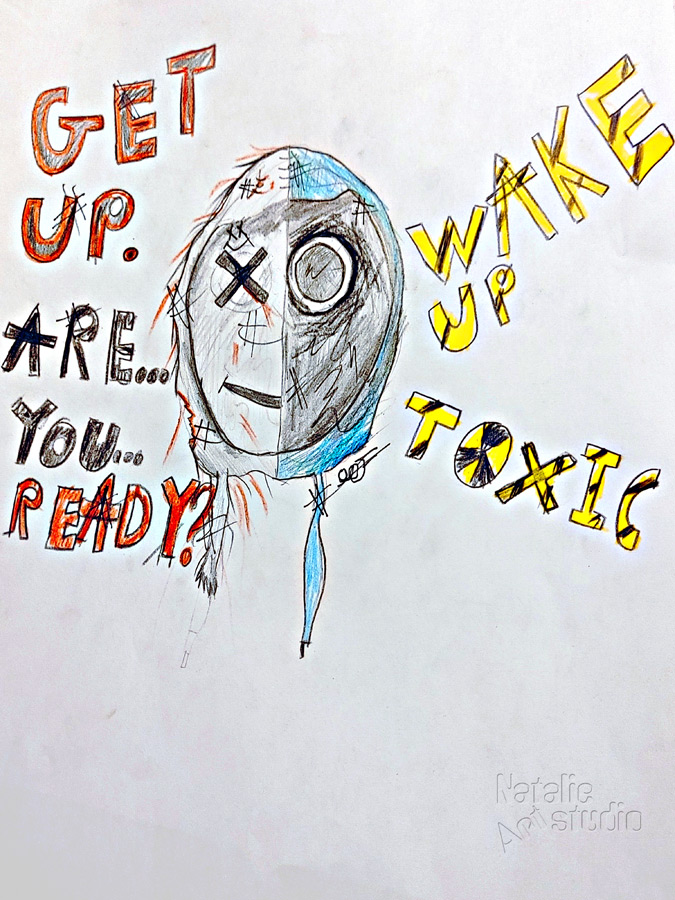 GET
UP.
ARE...
YOU...
READY?
WAKE
UP
TOXIC
Natalie
Art studio